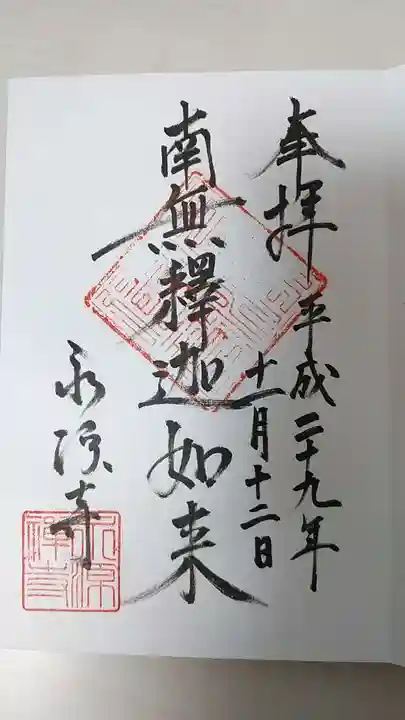 奉拝 平成二十九年
十一月十二日
南無釋迦如来
永源寺
永源禅寺